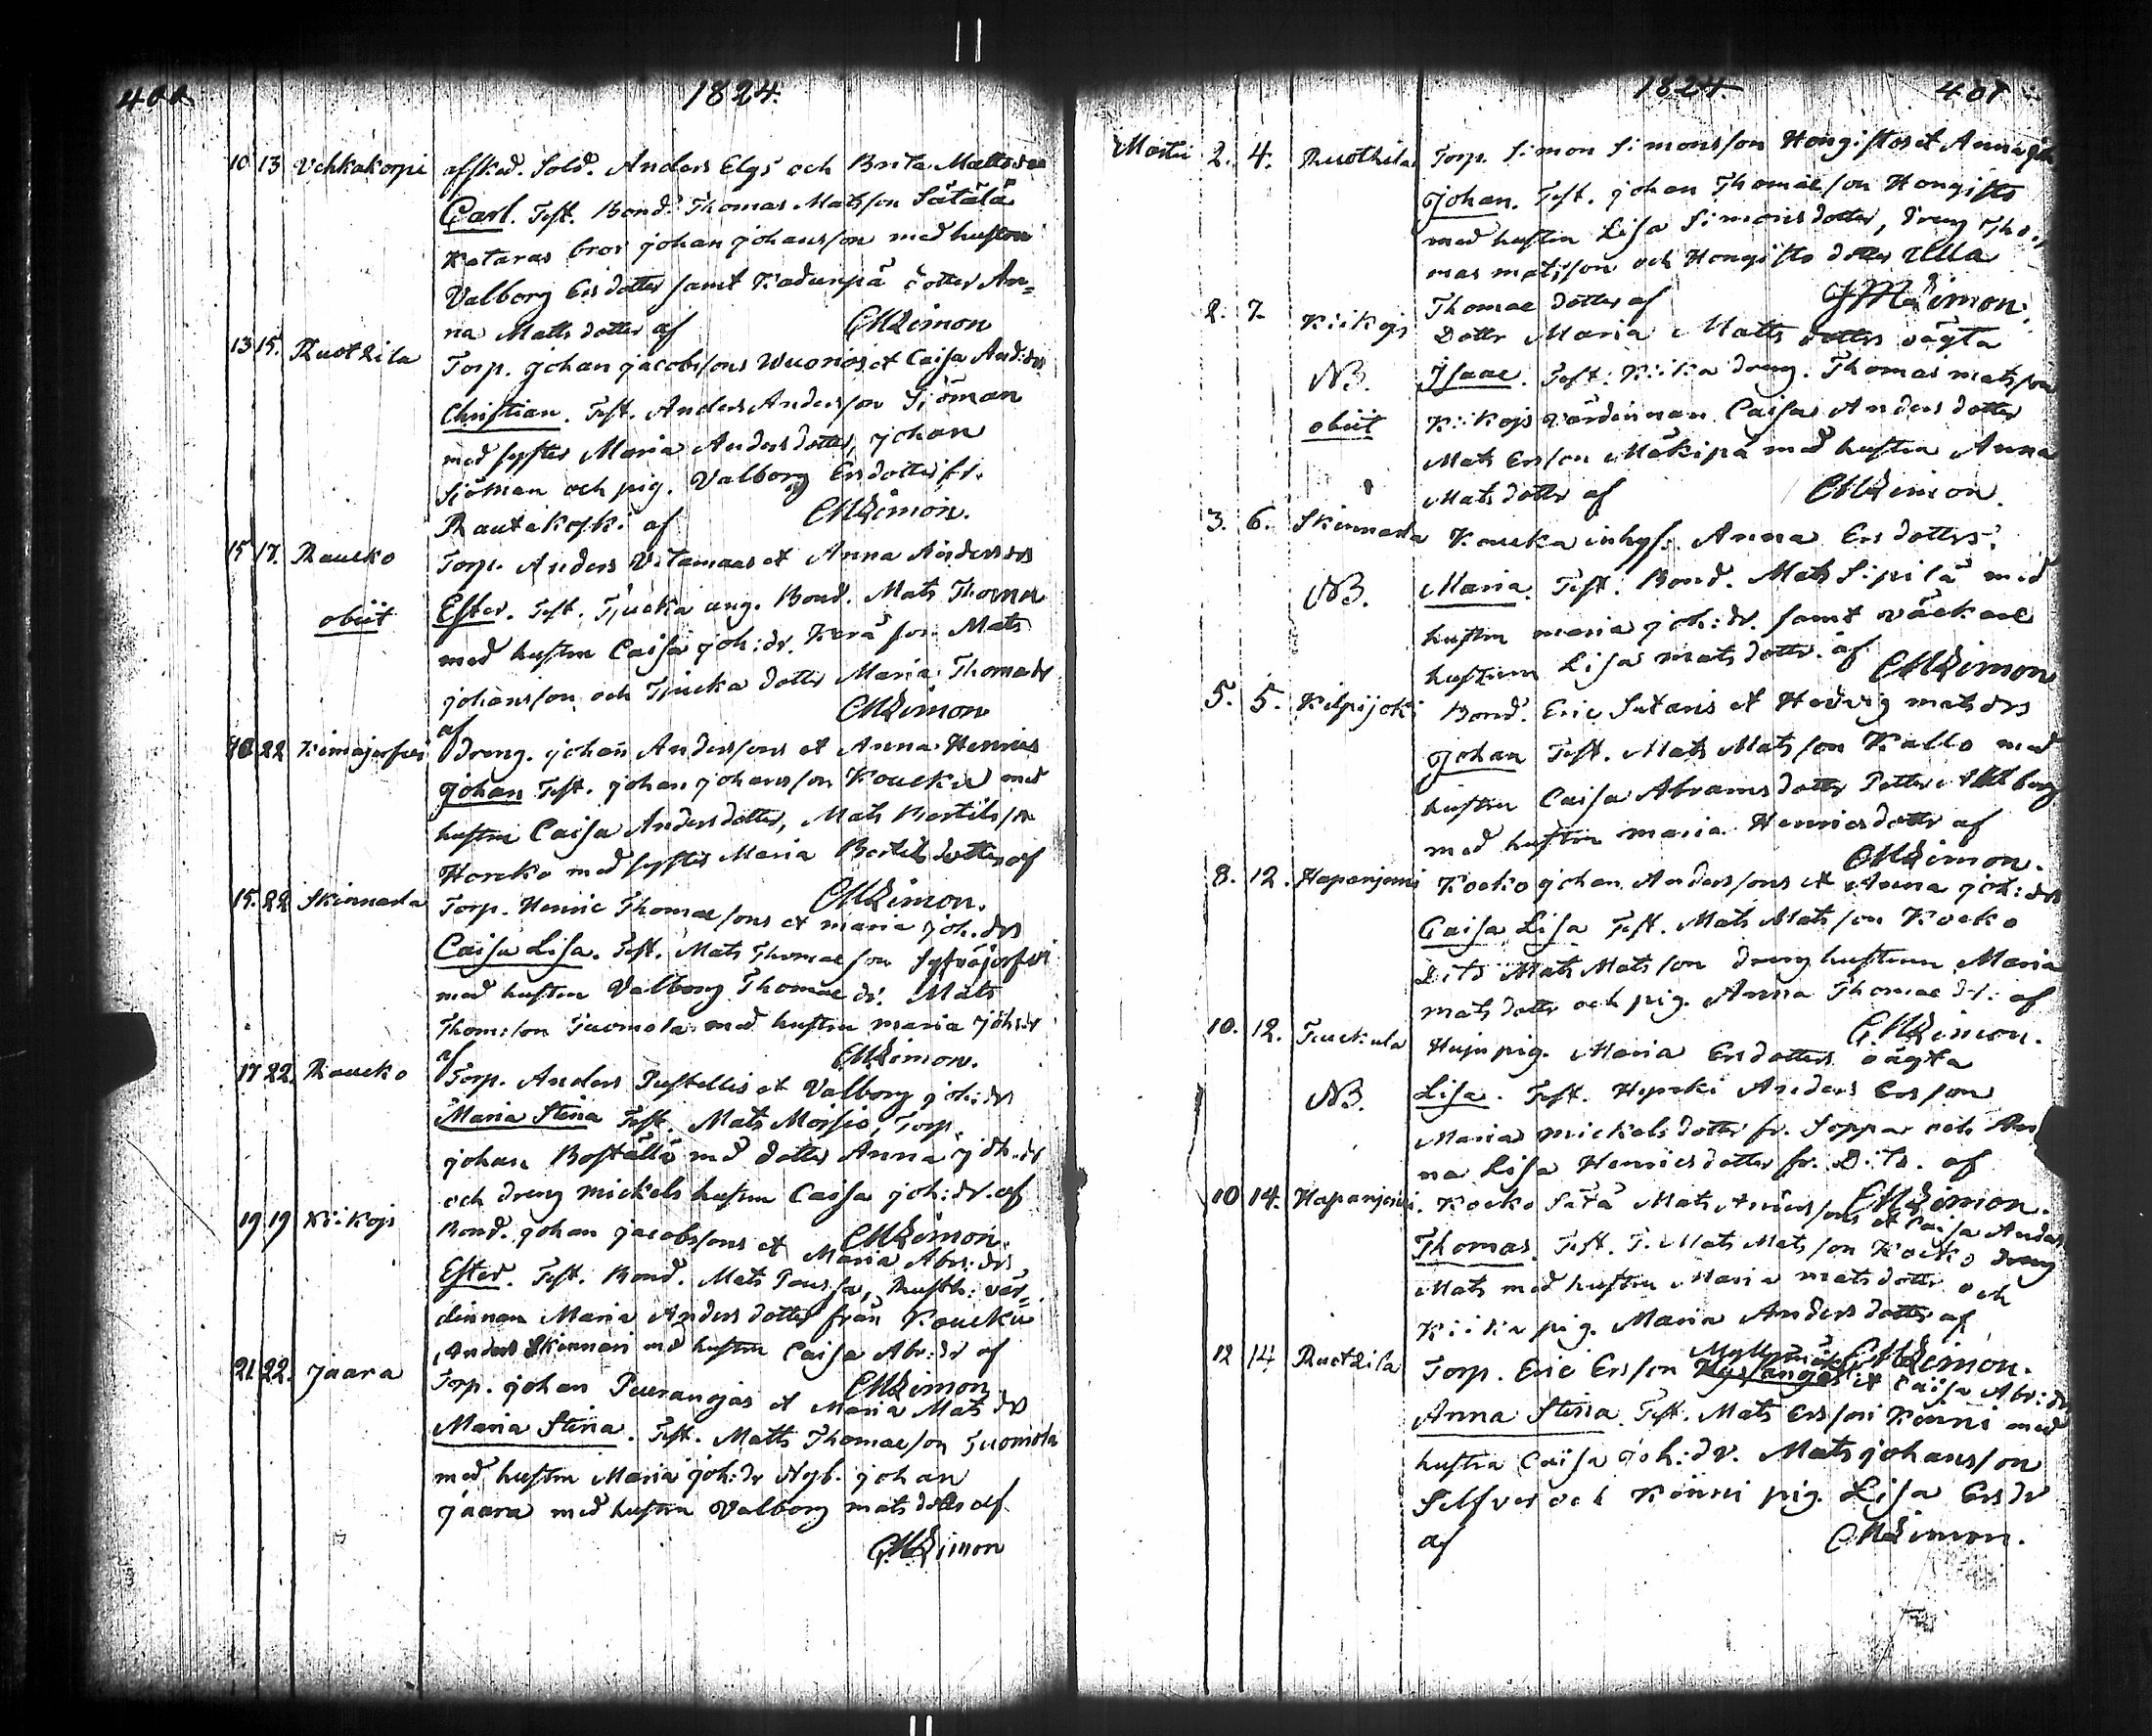 400. 1824.
10 13 Vehkakorpi afsked. Sold. Anders Elgs och Brita Matts
Carl. Test. Bond. Thomas Matsson Sätälä
Kataras bror Johan Johansson med hustru
Valborg Ersdotter samt dotter An=
na Matts dotter af CMLimon
13 15. Ruotsila Torp. Johan Jacobssons Wuorios et Caisa And:drs
Christian. Test. Anders Andersson Sjöman
med syster Maria Andersdotter, Johan
Sjöman och pig. Valborg Ersdotter fr.
Rautakoski af CMLimon.
15 17. Raucko Torp. Anders Vitamaas et Anna Andersdrs
obiit Ester. Test. ung. Bond. Mats Thomas
med hustru Caisa Joh:dr. Kerä son Mats
Johansson och dotter Maria Thomædr
af CMLimon
22 Kimajerfvi Dreng. Johan Anderssons et Anna Henrics
Johan Test. Johan Johansson Koucku med
hustru Caisa Andersdotter, Mats Bertilsson
Horcko med syster Maria Bertils dotter af
CMLimon.
15. 22 Skinnarla Torp. Henric Thomæsons et Maria Joh.drs
Caisa Lisa. Test. Mats Thomæson Syfväjerfvi
med hustru Valborg Thomæ dr. Mats
Thomsson Tuomola med hustru Maria Joh:dr
af CMLimon.
17 22. Raucko Torp. Anders Pustellis et Valborg Joh:drs
Maria Stina Test. Mats Moisio, Torp.
Johan Boställä med dotter Anna Joh.dr
och dreng Mickels hustru Caisa Joh:dr. af
CMLimon.
19 19 Kiikois Bond. Johan Jacobssons et Maria Abr:drs
Ester. Test. Bond. Mats Poussa, Rusth: vär=
dinnan Maria Anders dotter från Koucku
Anders Skinnari med hustru Caisa Abr:dr af
CMLimon
21. 22. Jaara Torp. Johan Puurangas et Maria Mats drs
Maria Stina. Test. Matts Thomæson Tuomola
med hustru Maria Joh:dr Nyb. Johan
Jaara med hustru Valborg Mats dotter af
CMLimon
1824. 401
Martii 2. 4. Ruotsila Torp. Simon Simonsson Hongistos et Anna
Johan. Test. Johan Thomæson Hongisto
med hustru Lisa Simons dotter, dreng Tho=
mas Matsson och Hongisto dotter Ulla
Thomæ dotter af CMLimon.
2. 7. Kiikois Dotter Maria Matts dotters oägta
NB. Isaac. Test. Kiika dreng. Thomas Matsson
obiit Kiikois Värdinnan Caisa Anders dotter
Mats Ersson Mäkipä med hustru Anna
Mats dotter af CMLimon.
3. 6. Skinnarla Koucka inhys: Anna Ers dotters.
NB. Maria. Test. Bond. Mats Sipilä med
hustru Maria Joh:dr. samt
hustrun Lisa Mats dotter af CMLimon
5. 5. Kilpijoki Bond. Eric Sutaris et Hedvig Matsdrs
Johan Test. Mats Matsson Kallo med
hustru Caisa Abrams dotter Petter Ahlberg
med hustru Maria Henricsdotter af
CMLimon.
8. 12. Hapanjerwi Kocko Johan Anderssons et Anna Joh:drs
Caisa Lisa Test. Mats Matsson Kocko
Dito Mats Matsson drenghustrun Maria
Mats dotter och pig. Anna Thomæ dr: af
CMLimon.
10. 12. Tuckula Huju pig. Maria Ersdotters oägta
NB. Lisa. Test. Anders Ersson
Maria Mickelsdotter fr. Soppar och An
na Lisa Henricsdotter fr. Dito. af
CMLimon.
10 14. Hapanjerwi. Kocko Sätä Mats Anderssons et Caisa Anders
Thomas. Test. T. Mats Matsson Kocko dreng
Mats med hustru Maria Matsdotter och
Kiikka pig. Maria Anders dotter af
CMLimon.
12 14 Ruotsila Torp. Eric Ersson et Caisa Abr:drs
Anna Stina. Test. Mats Ersson Könni med
hustru Caisa Joh:dr. Mats Johansson
Selfver och Könni pig. Lisa Ersdr
af CMLimon.